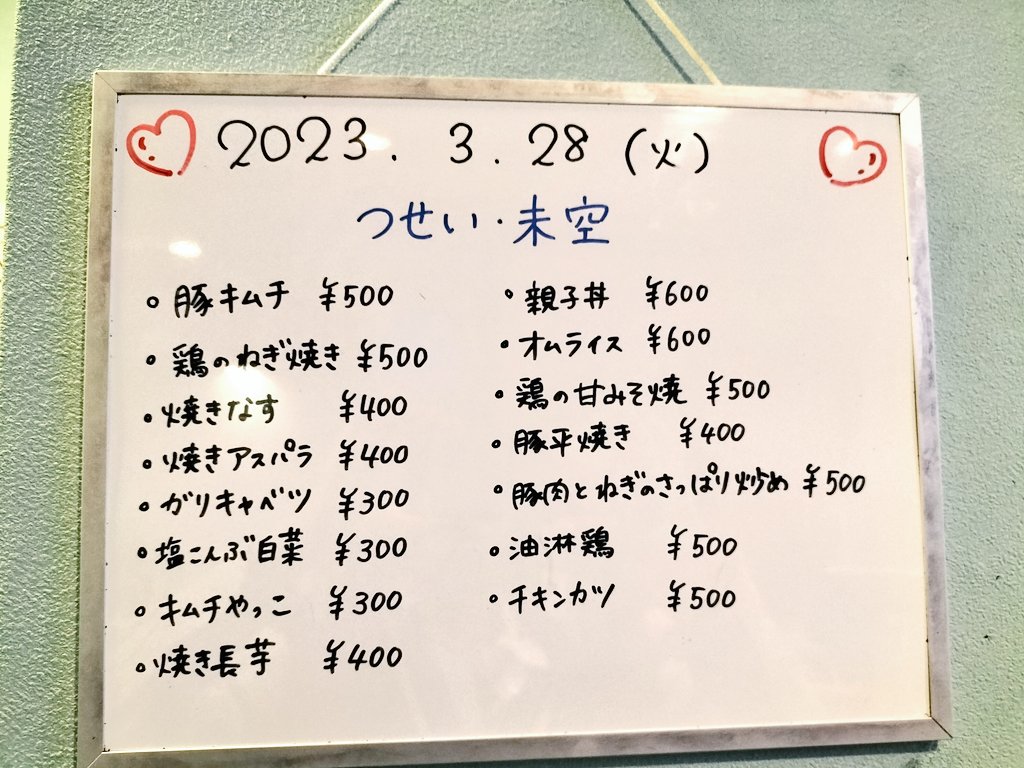 2023. 3. 28 (火)
つせい・未空
・豚キムチ ¥500
・鶏のねぎ焼き ¥500
・焼きなす ¥400
・焼きアスパラ ¥400
・ガリキャベツ ¥300
・塩こんぶ白菜 ¥300
・キムチやっこ ¥300
・焼き長芋 ¥400
・親子丼 ¥600
・オムライス ¥600
・鶏の甘みそ焼 ¥500
・豚平焼き ¥400
・豚肉とねぎのさっぱり炒め ¥500
・油淋鶏 ¥500
・チキンカツ ¥500